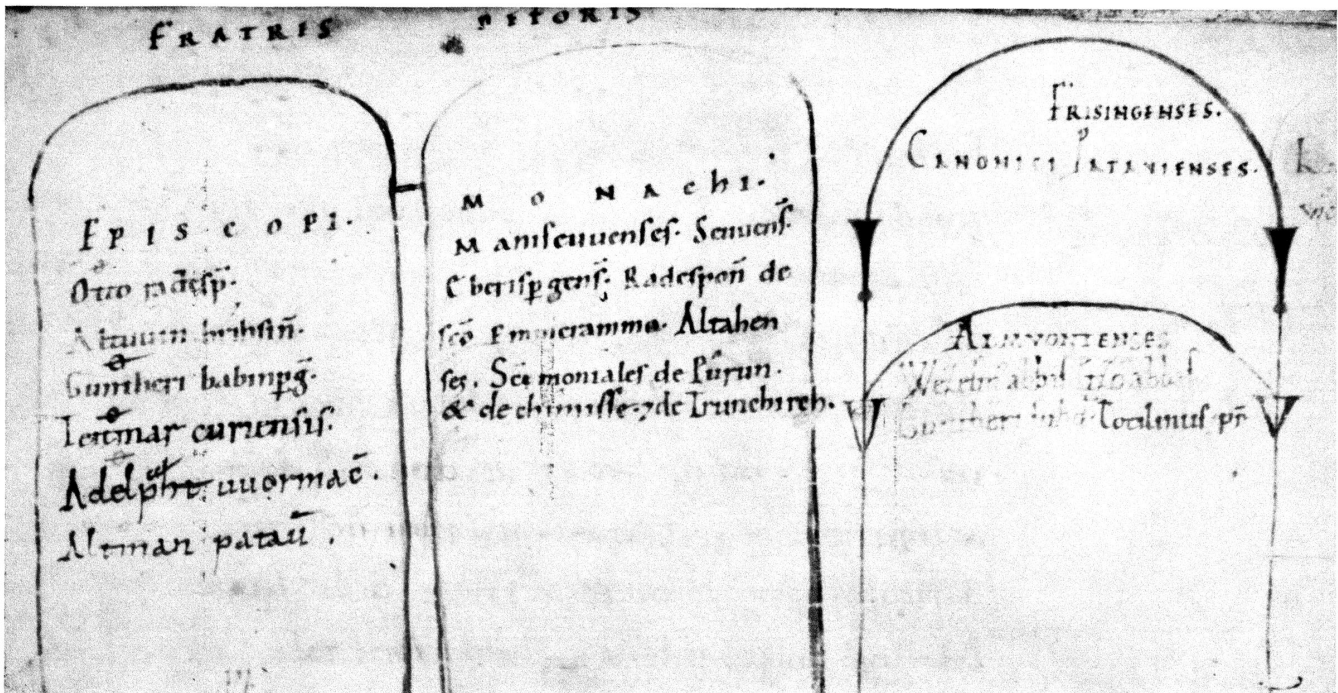 FRATRIS
EPISCOPI.
Otto radesp̄.
Altuuin brihsin̄.
Guntheri babinp̄g.
Tentmar curiensis.
Adelpht. uuormac̄.
Altman pataū.
MONAChI.
Manseuuenses. Seuuens̄.
Eberisp̄gens̄. Radespon̄ de
sc̄o Emmerammo. Altahen
ses. Sc̄imoniales de Púrun.
& de chimisse. ⁊ de Trunchireh.
FRISINGENSES.
CANONICI PATAVIENSES.
abbas abbas
Guntheri Totilinus, pr̄